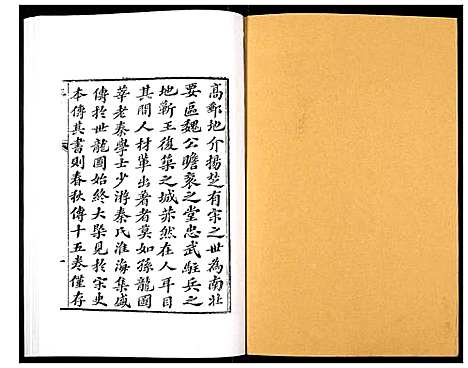 高郵地介揚楚有宋之世為南北
要區魏公瞻衮之堂忠武駐兵之
地蘄王後築之城榮然在人耳目
其間人材軰出著者莫如孫龍圖
莘老秦學士少游秦氏淮海集盛
傳於世龍圖始終大槩見於宋史
本傳其書則春秋傳十五卷僅存